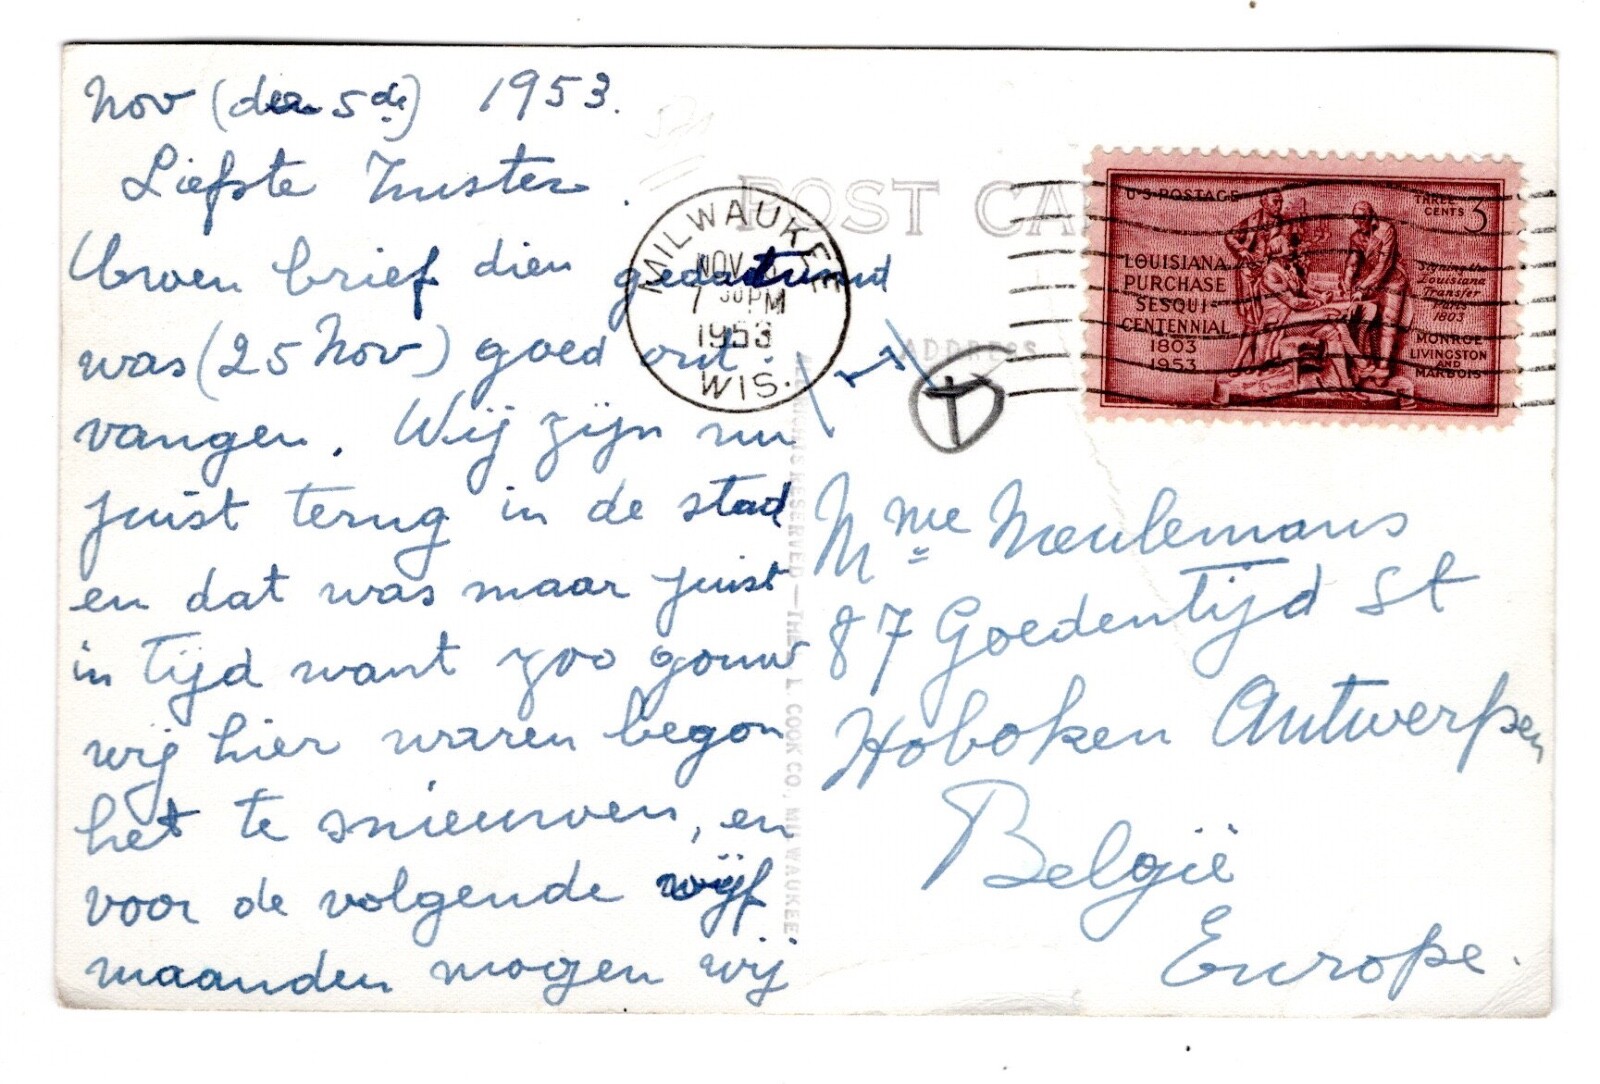 Nov (den 5de) 1953.
Liefste Zuster.
Uwen brief dien gedateerd
was (25 Nov) goed ont-
vangen. Wij zijn nu
juist terug in de stad
en dat was maar juist
in tijd want zoo gouw
wij hier waren begon
het te snieuwen, en
voor de volgende vijf
maanden mogen wij
POST CA
ADDRESS
MILWAUKEE
NOV
7 30 PM
1953
WIS.
U·S·POSTAGE
THREE CENTS 3
LOUISIANA
PURCHASE
SESQUI-
CENTENNIAL
1803
1953
Signing the
Louisiana
Transfer
Paris
1803
MONROE
LIVINGSTON
AND
MARBOIS
T
RESERVED — THE L. L. COOK CO., MILWAUKEE
Mme Meulemans
87 Goedentijd St
Hoboken Antwerpen
België
Europe.